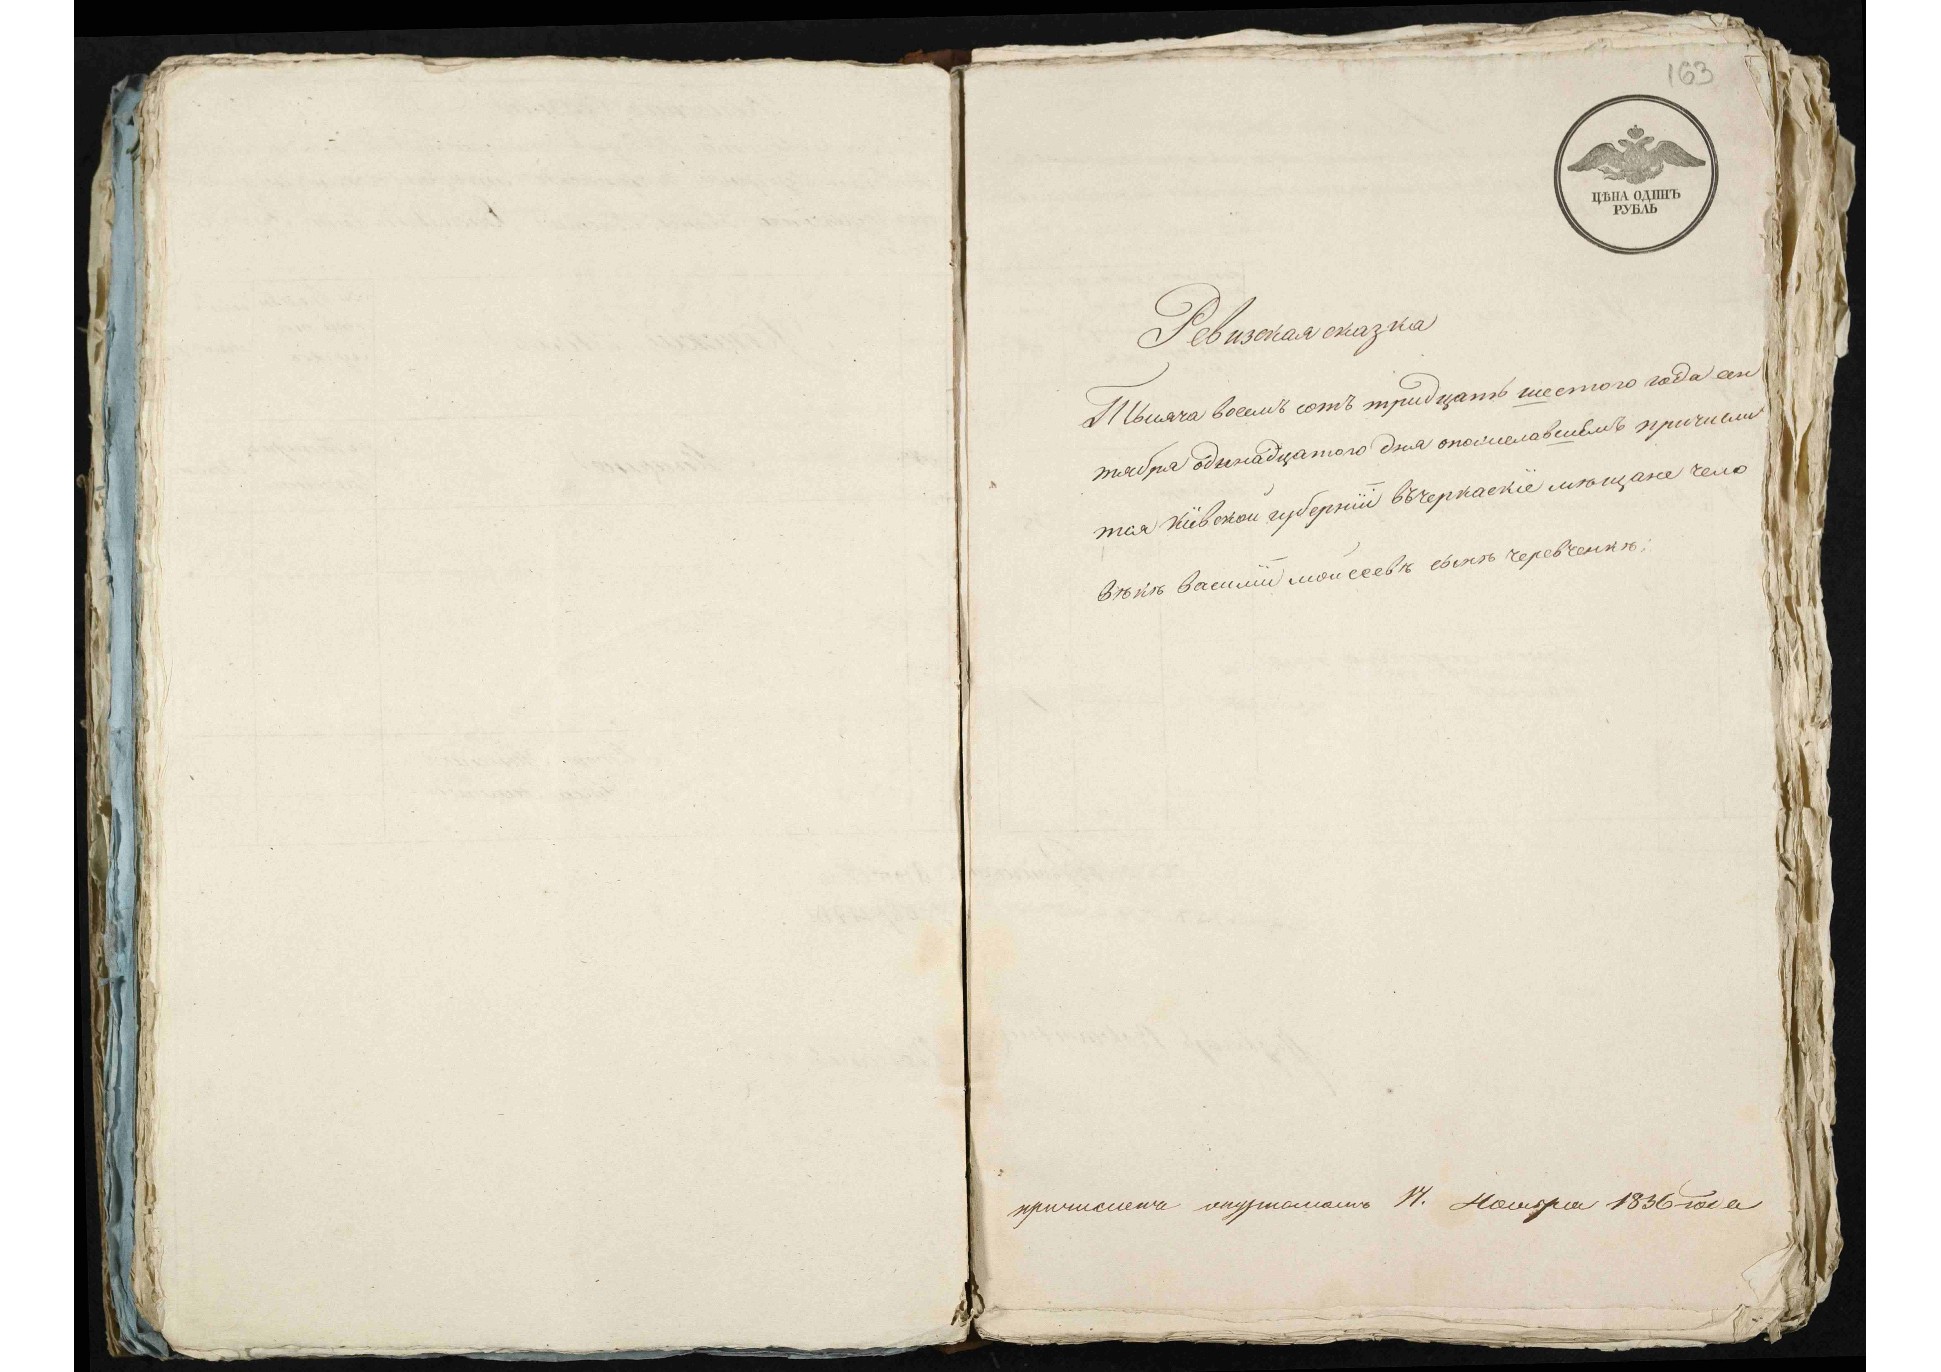 163
ЦѢНА ОДИНЪ
РУБЛЬ
Ревизская сказка
Тысяча восемъ сотъ тридцать шестого года сен
тября одинадцатого дня опожелавшемъ причисли
тся Кіївской губерніи въчеркаскіе мющане чело
вѣкѣ василии мойсеевѣ сынѣ черевченкѣ;
причислена 17. Ноября 1836 года